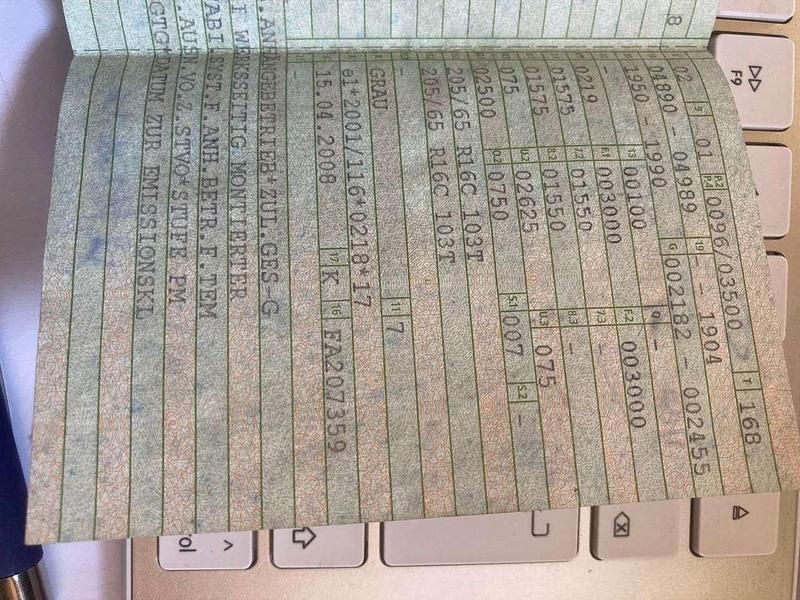 8
02 19 01 P.2 P.4 0096/03500 T 168
04890 - 04989 19 - - 1904
1950 - 1990 G 002182 - 002455
- 13 00100 -
0219 F.1 003000 F.2 003000
01575 7.2 01550 7.3 -
01575 8.2 01550 8.3 -
075 U.2 02625 U.3 075
02500 O.2 0750 S.1 007 S.2 -
205/65 R16C 103T
205/65 R16C 103T
-
GRAU 11 7
e1*2001/116*0218*17
15.04.2008 17 K 16 FA207359
F.ANHÄGEBETRIEB*ZUL.GES-G
WERKSSEITIG MONTIERTER
ABI.SYST.F.ANH.BETR.E.TEM
.AUSN.VO.Z.STVO*STUFE PM
DATUM ZUR EMISSIONSKL
F9